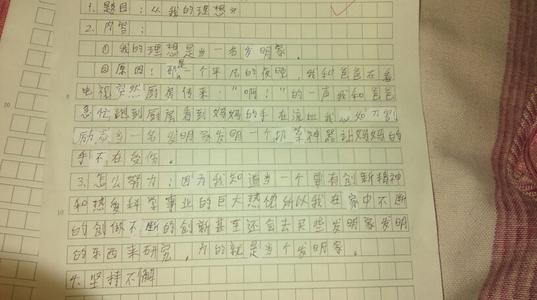 1. 题目：《我的理想》
2. 内容：
① 我的理想是当一名发明家。
②原因：那是一个平凡的夜晚，我和爸爸在看
电视突然厨房传来"啊！"的一声我和爸爸
急忙跑到厨房看到妈妈的手在流血我
励志当一名发明家发明一个切菜神器让妈妈的
手不在受伤。
3. 怎么努力：因为我知道当一个要有创新精神
和热爱科学事业的巨大热情所以我在家中不断
的创做不断的创新甚至还会去买些发明家发明
的东西来研究，为的就是当个发明家。
4. 坚持不解